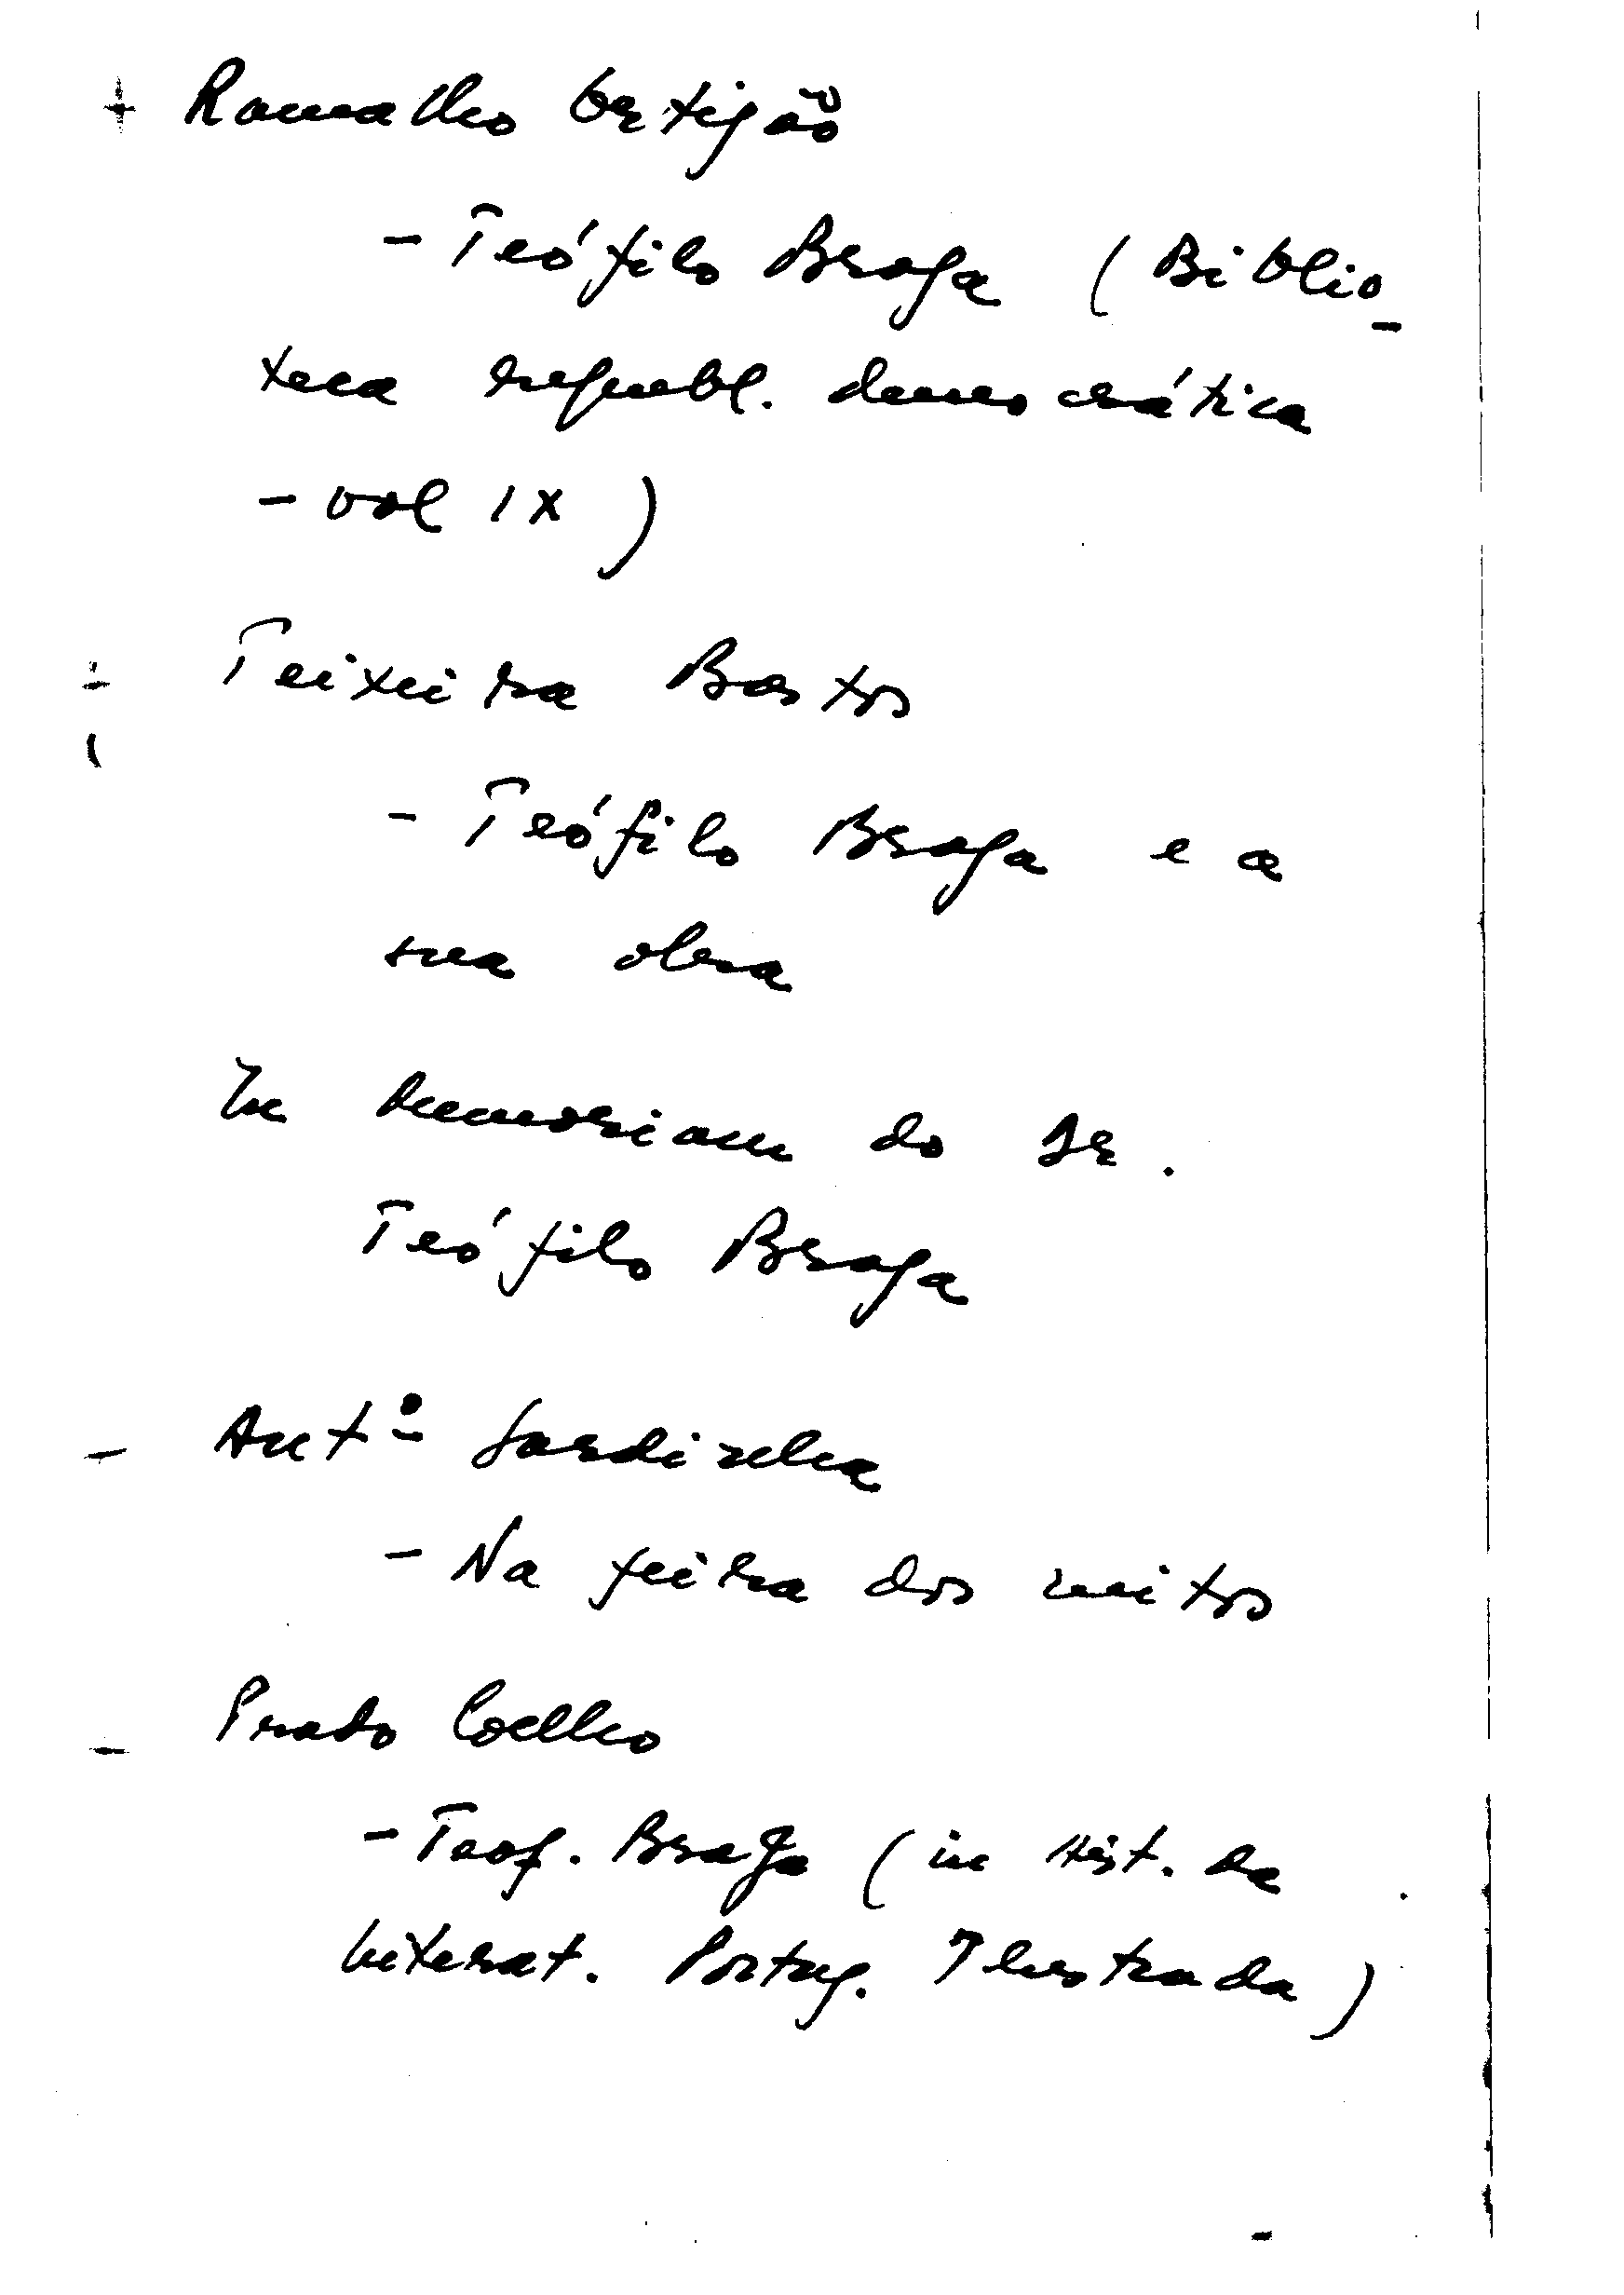 + Ramalho Ortigão
- Teófilo Braga (Biblio-
teca republ. democrática
- vol IX)
Teixeira Bastos
- Teófilo Braga e a
sua obra
In Memoriam do Dr.
Teófilo Braga
- Antº Sardinha
- Na feira dos mitos
- Prado Coelho
- Teof. Braga (in Hist. da
Literat. Portug. Ilustrada)